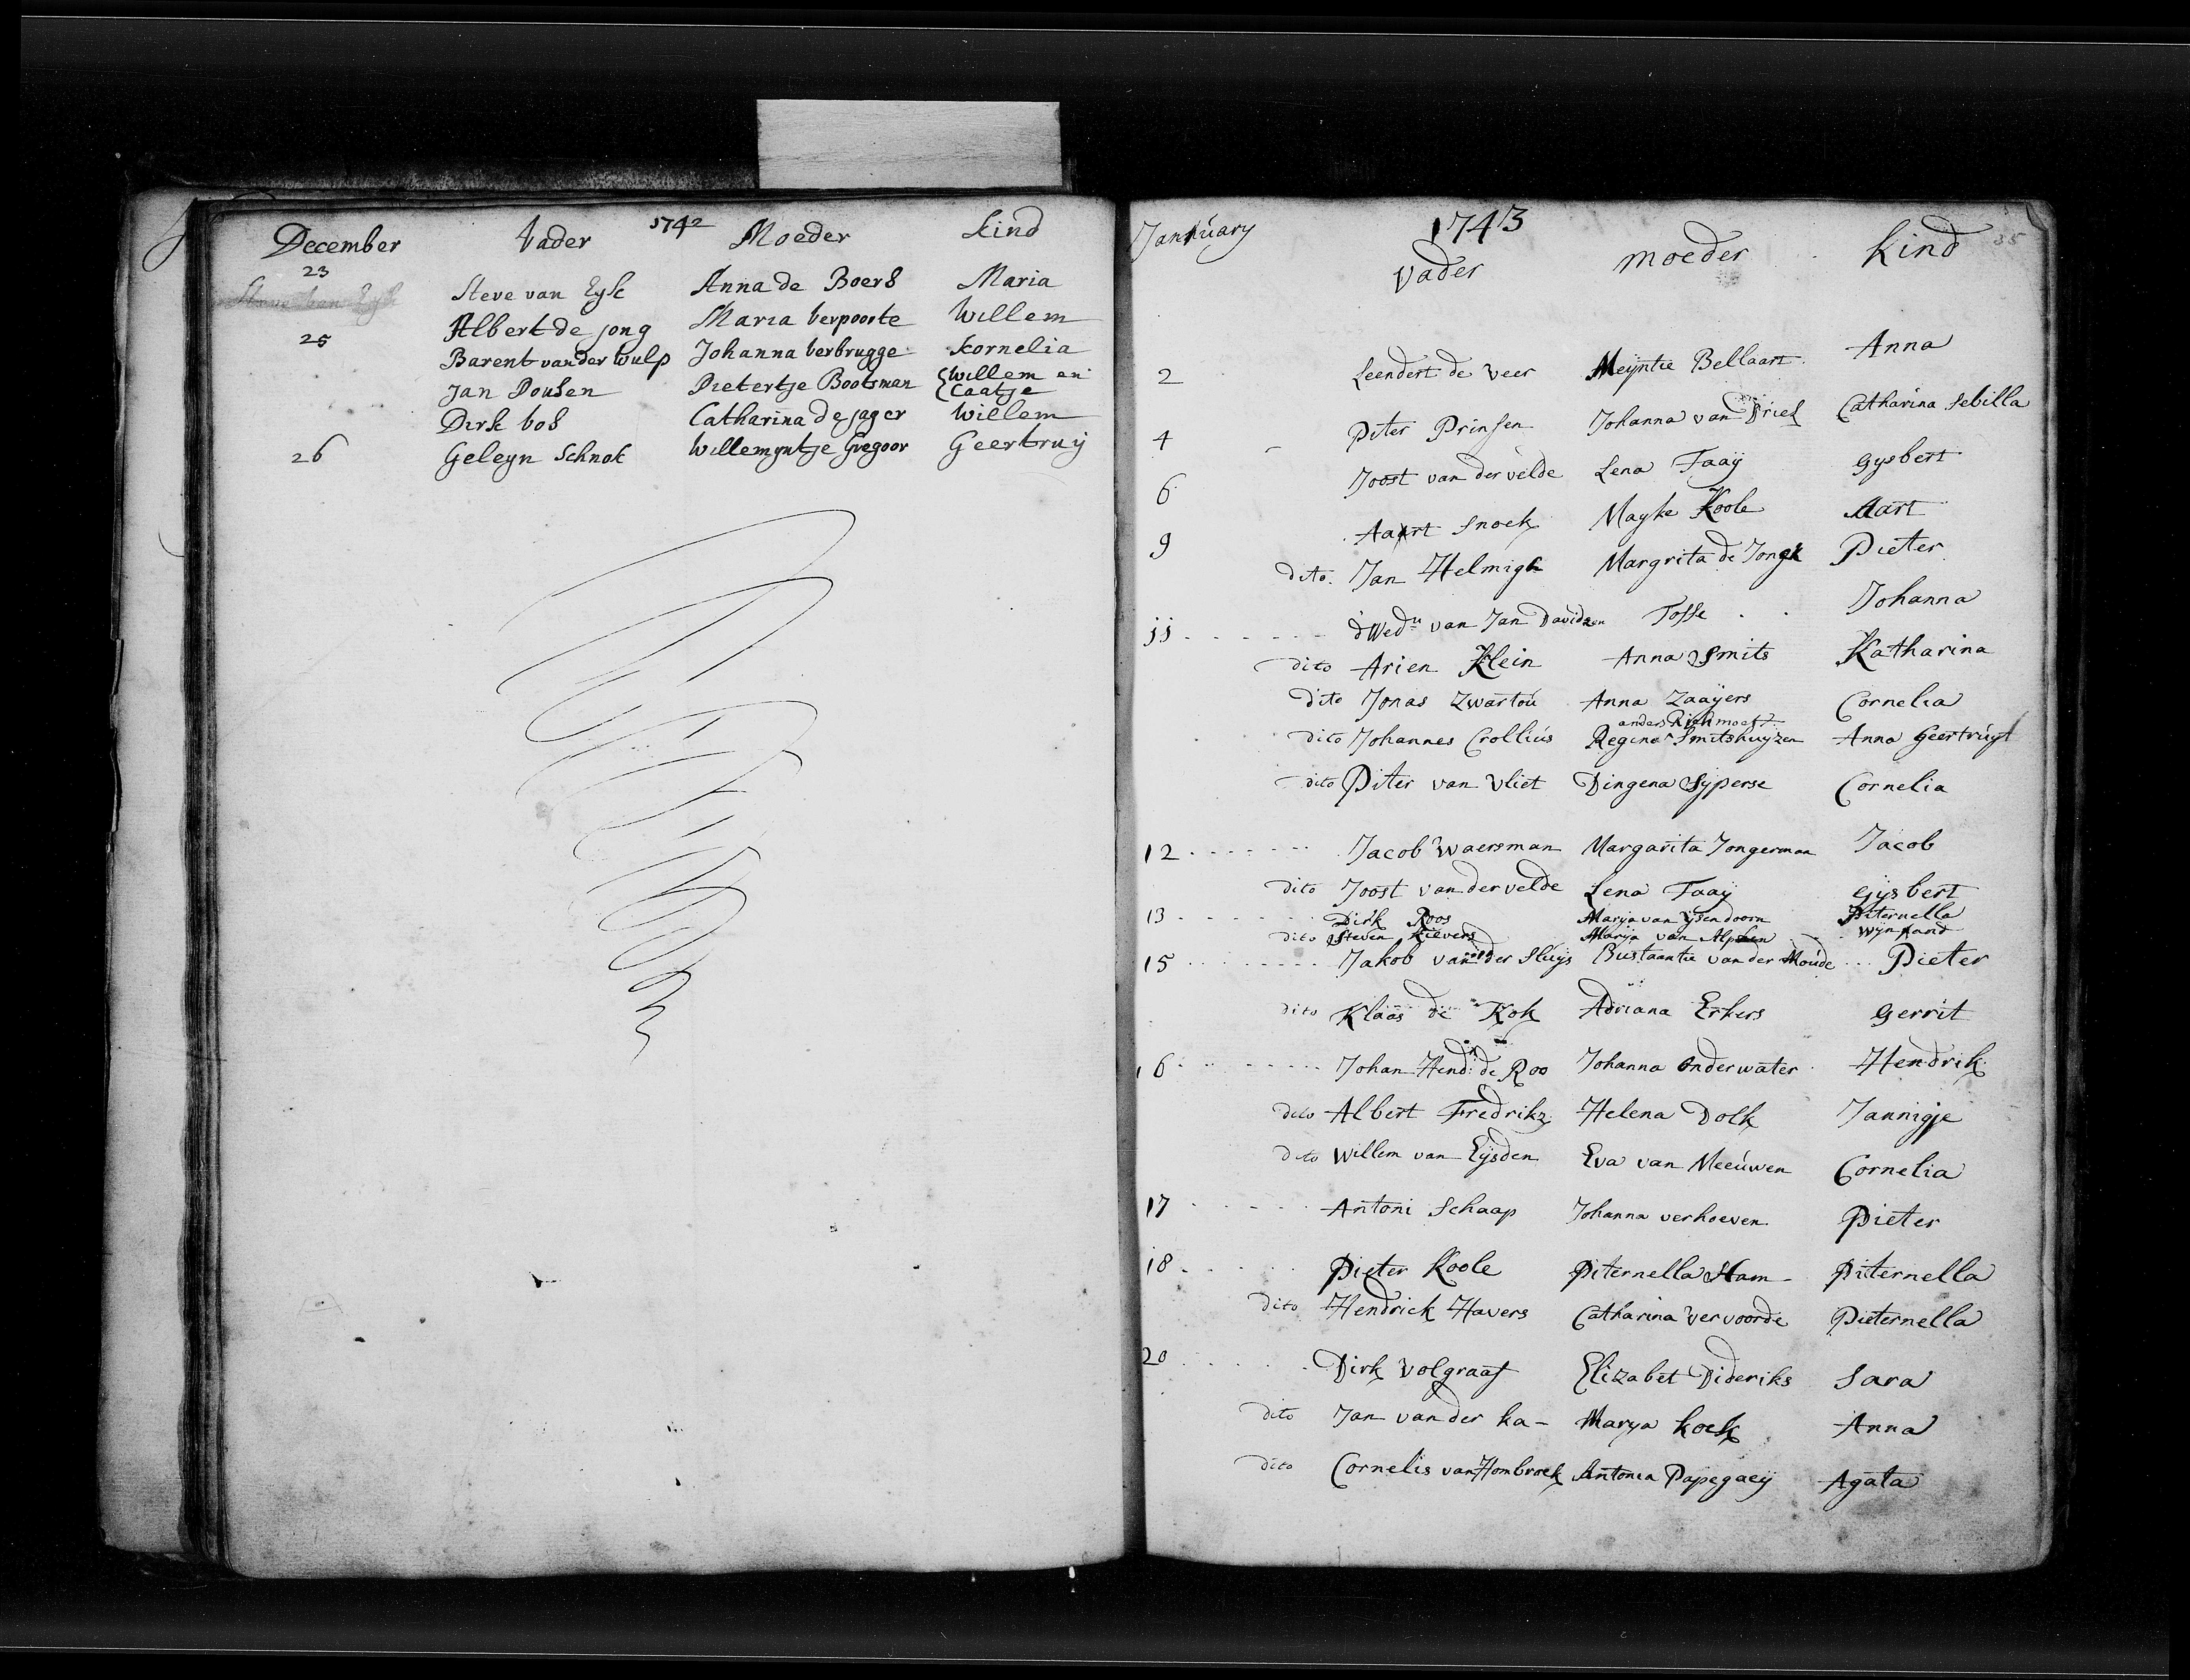 1742
December Vader Moeder Kind
23 Steve van Eyk Anna de Boers Maria
Albert de jong Maria verpoorte Willem
25 Barent vander Wulp Johanna verbrugge Kornelia
Jan Pousen Pietertje Bootsman {Willem en
Caatje
Dirk bos Catharina de jager Willem
26 Geleyn Schnok Willemyntje Gregoor Geertruy
January 1743 35
Vader moeder Kind
2 Leendert de Veer Meijntie Bellaart Anna
4 Piter Prinsen Johanna van Driel Catharina Sebilla
6 Joost van der velde Lena Taaij Gysbert
9 Aart Snoek Mayke Koole Aart
dito Jan Helmigh Margrita de Jongk Pieter
11 dWedu van Jan Davidzen Tosse Johanna
dito Arien Klein Anna Smits Katharina
dito Jonas Zwartou Anna Zaaijers Cornelia
anders
dito Johannes Crollius Regina Smitshuyzen Anna Geertruyt
dito Piter van Vliet Dingena Syperse Cornelia
12 Jacob Waersman Margarita Jongerman Jacob
dito Joost van der velde Lena Taaij Gijsbert
13 Dirk Roos Marya van ijsendoorn Piternella
dito Steven Kievers Marija van Alphen Wijnand
15 Jakob van der Sluijs Bustaantie van der Moude Pieter
dito Klaas de Kok Adriana Erkers Gerrit
16 Johan Hend: de Roo Johanna Onderwater Hendrik
dito Albert Fredrikz Helena Dolk Jannigje
dito Willem van Eijsden Eva van Meeuwen Cornelia
17 Antoni Schaap Johanna verhoeven Pieter
18 Pieter Koole Piternella Ham Piternella
dito Hendrick Havers Catharina Vervoorde Pieternella
20 Dirk Volgraaf Elizabet Dideriks Sara
dito Jan van der ka Marya koek Anna
dito Cornelis van Hombroek Antonia Papegaeij Agata